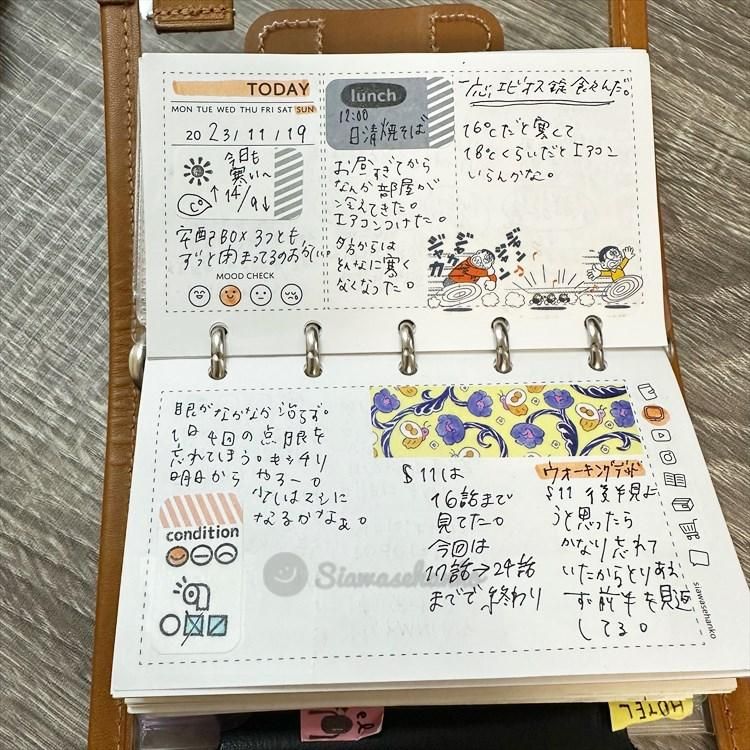 TODAY
MON TUE WED THU FRI SAT SUN
2023/11/19
今日も
寒い〜
↑14/9↓
宅配BOX 3つとも
ずっと閉まってるのおかしい。
MOOD CHECK
lunch
12:00
日清焼そば
お昼すぎてから
なんか部屋が
冷えてきた。
エアコンつけた。
夕方からは
そんなに寒く
なくなった。
一応エビオス錠食べんだ。
16℃だと寒くて
18℃くらいだとエアコン
いらんかな。
ジャカ
ジャカ
ジャン
ジャン
眼がなかなか治らず。
1日4回の点眼を
忘れてしまう。キッチリ
明日から やろー。
少しはマシに
なるかなぁ。
condition
S11は
16話まで
見てた。
今回は
17話→24話
までで終わり
ウォーキングデッド
S11 後半見よ
うと思ったら
かなり忘れて
いたからとりあえ
ず前半を見返
してる。
Siawasehanko
siawasehanko
HOTEL